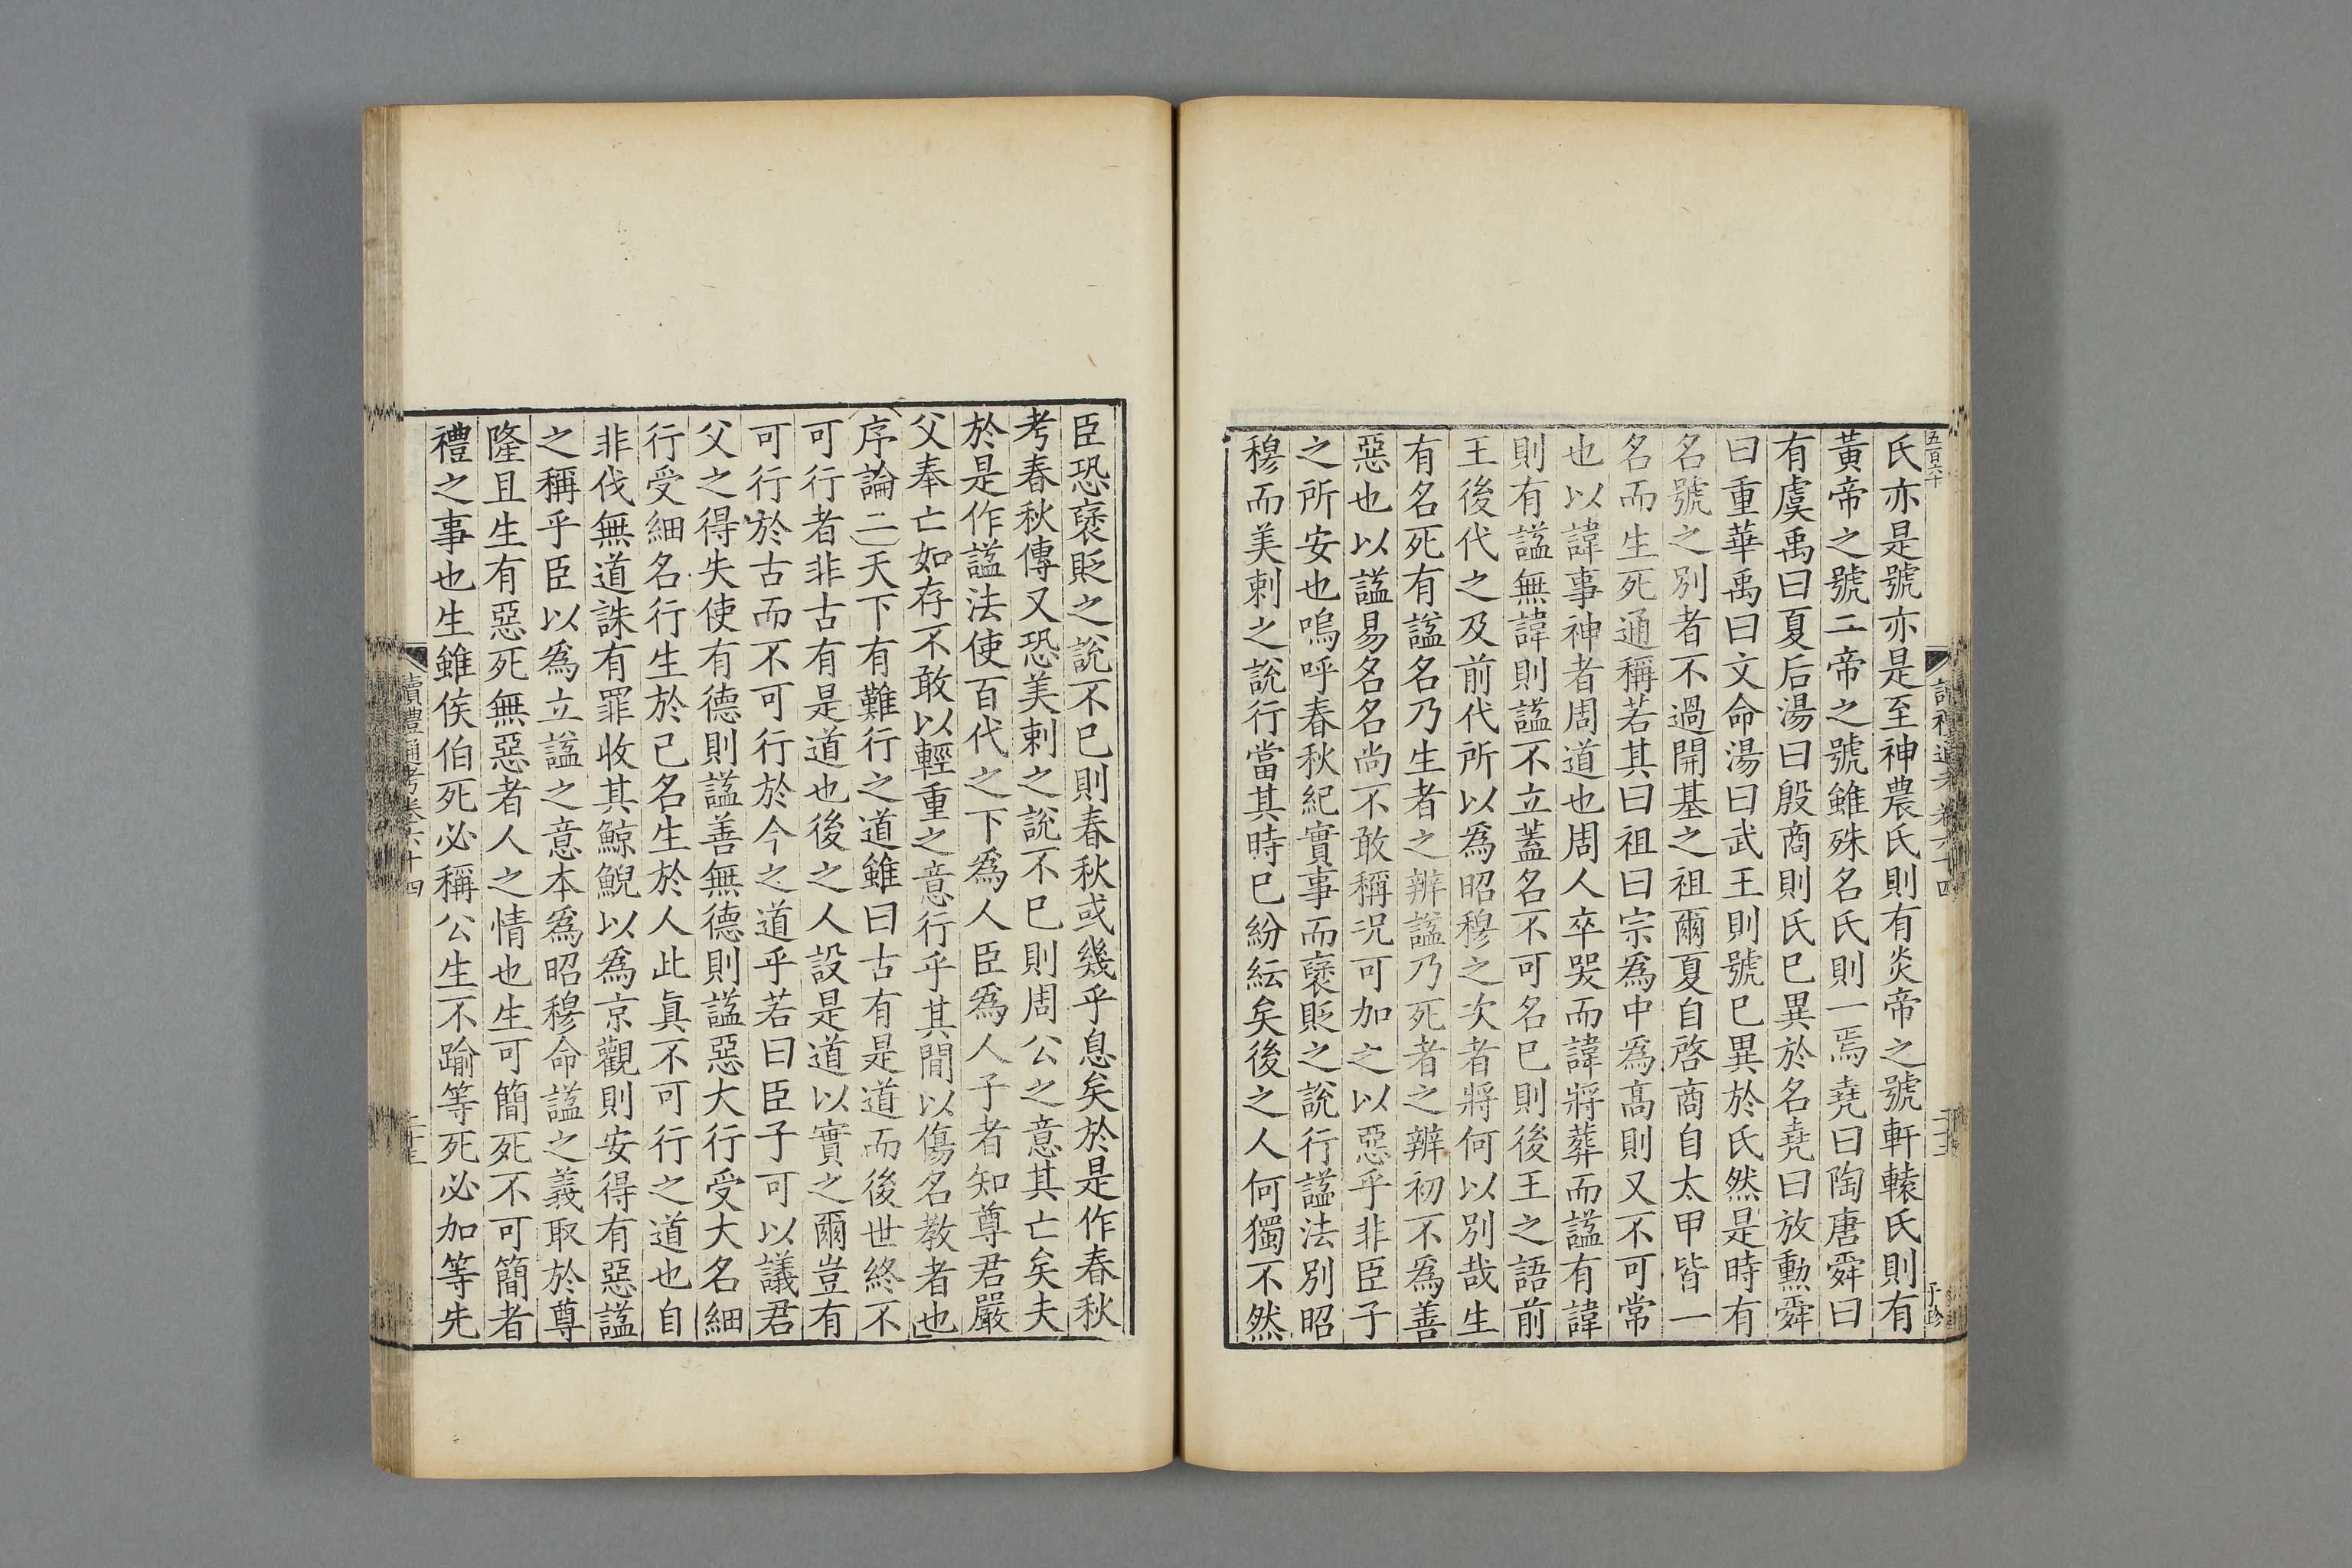 五百六十
氏亦是號亦是至神農氏則有炎帝之號軒轅氏則有
黃帝之號二帝之號雖殊名氏則一焉堯曰陶唐舜曰
有虞禹曰夏后湯曰殷商則氏已異於名堯曰放勲舜
曰重華禹曰文命湯曰武王則號已異於氏然是時有
名號之別者不過開基之祖爾夏自啓商自太甲皆一
名而生死通稱若其曰祖曰宗爲中爲高則又不可常
也以諱事神者周道也周人卒哭而諱將葬而諡有諱
則有諡無諱則諡不立蓋名不可名已則後王之語前
王後代之及前代所以爲昭穆之次者將何以別哉生
有名死有諡名乃生者之辨諡乃死者之辨初不爲善
惡也以諡易名名尚不敢稱况可加之以惡乎非臣子
之所安也嗚呼春秋紀實事而褒貶之說行諡法別昭
穆而美刺之說行當其時已紛紜矣後之人何獨不然
臣恐褒貶之說不已則春秋或幾乎息矣於是作春秋
考春秋傳又恐美刺之說不已則周公之意其亡矣夫
於是作諡法使百代之下爲人臣爲人子者知尊君嚴
父奉亡如存不敢以輕重之意行乎其間以傷名教者也
序論二天下有難行之道雖曰古有是道而後世終不
可行者非古有是道也後之人設是道以實之爾豈有
可行於古而不可行於今之道乎若曰臣子可以議君
父之得失使有德則諡善無德則諡惡大行受大名細
行受細名行生於己名生於人此眞不可行之道也自
非伐無道誅有罪收其鯨鯢以爲京觀則安得有惡諡
之稱乎臣以爲立諡之意本爲昭穆命諡之義取於尊
隆且生有惡死無惡者人之情也生可簡死不可簡者
禮之事也生雖侯伯死必稱公生不踰等死必加等先
讀禮通考卷六十四